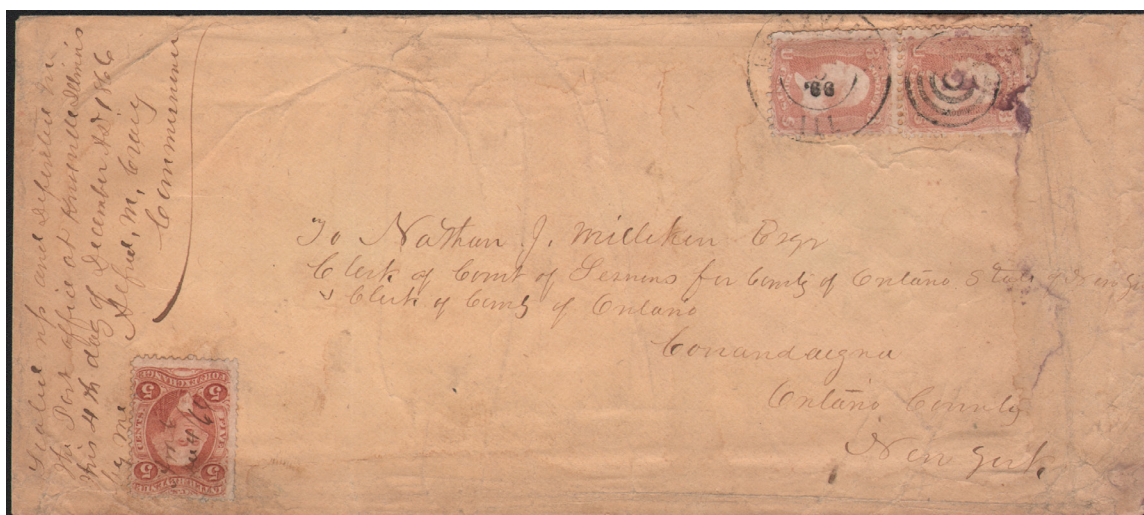 Sealed up and deposited in
the Post office at Knoxville Illinois
this 4th day of December AD 1866
by me Alfred, M, Craig
Commissioner
66
ILL
U
3
To Nathan J. Milliken Esqr
Clerk of Court of Sessions for County of Ontario State of New York
& Clerk of County of Ontario
Conandaigua
Ontario County
New York
5
5
FIVE
CENTS
5
5